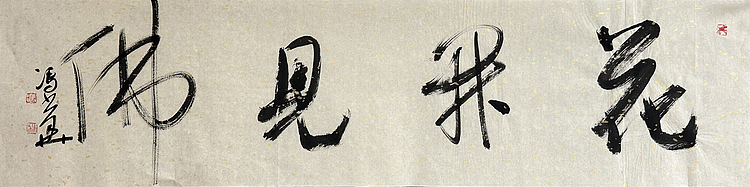 花開見佛